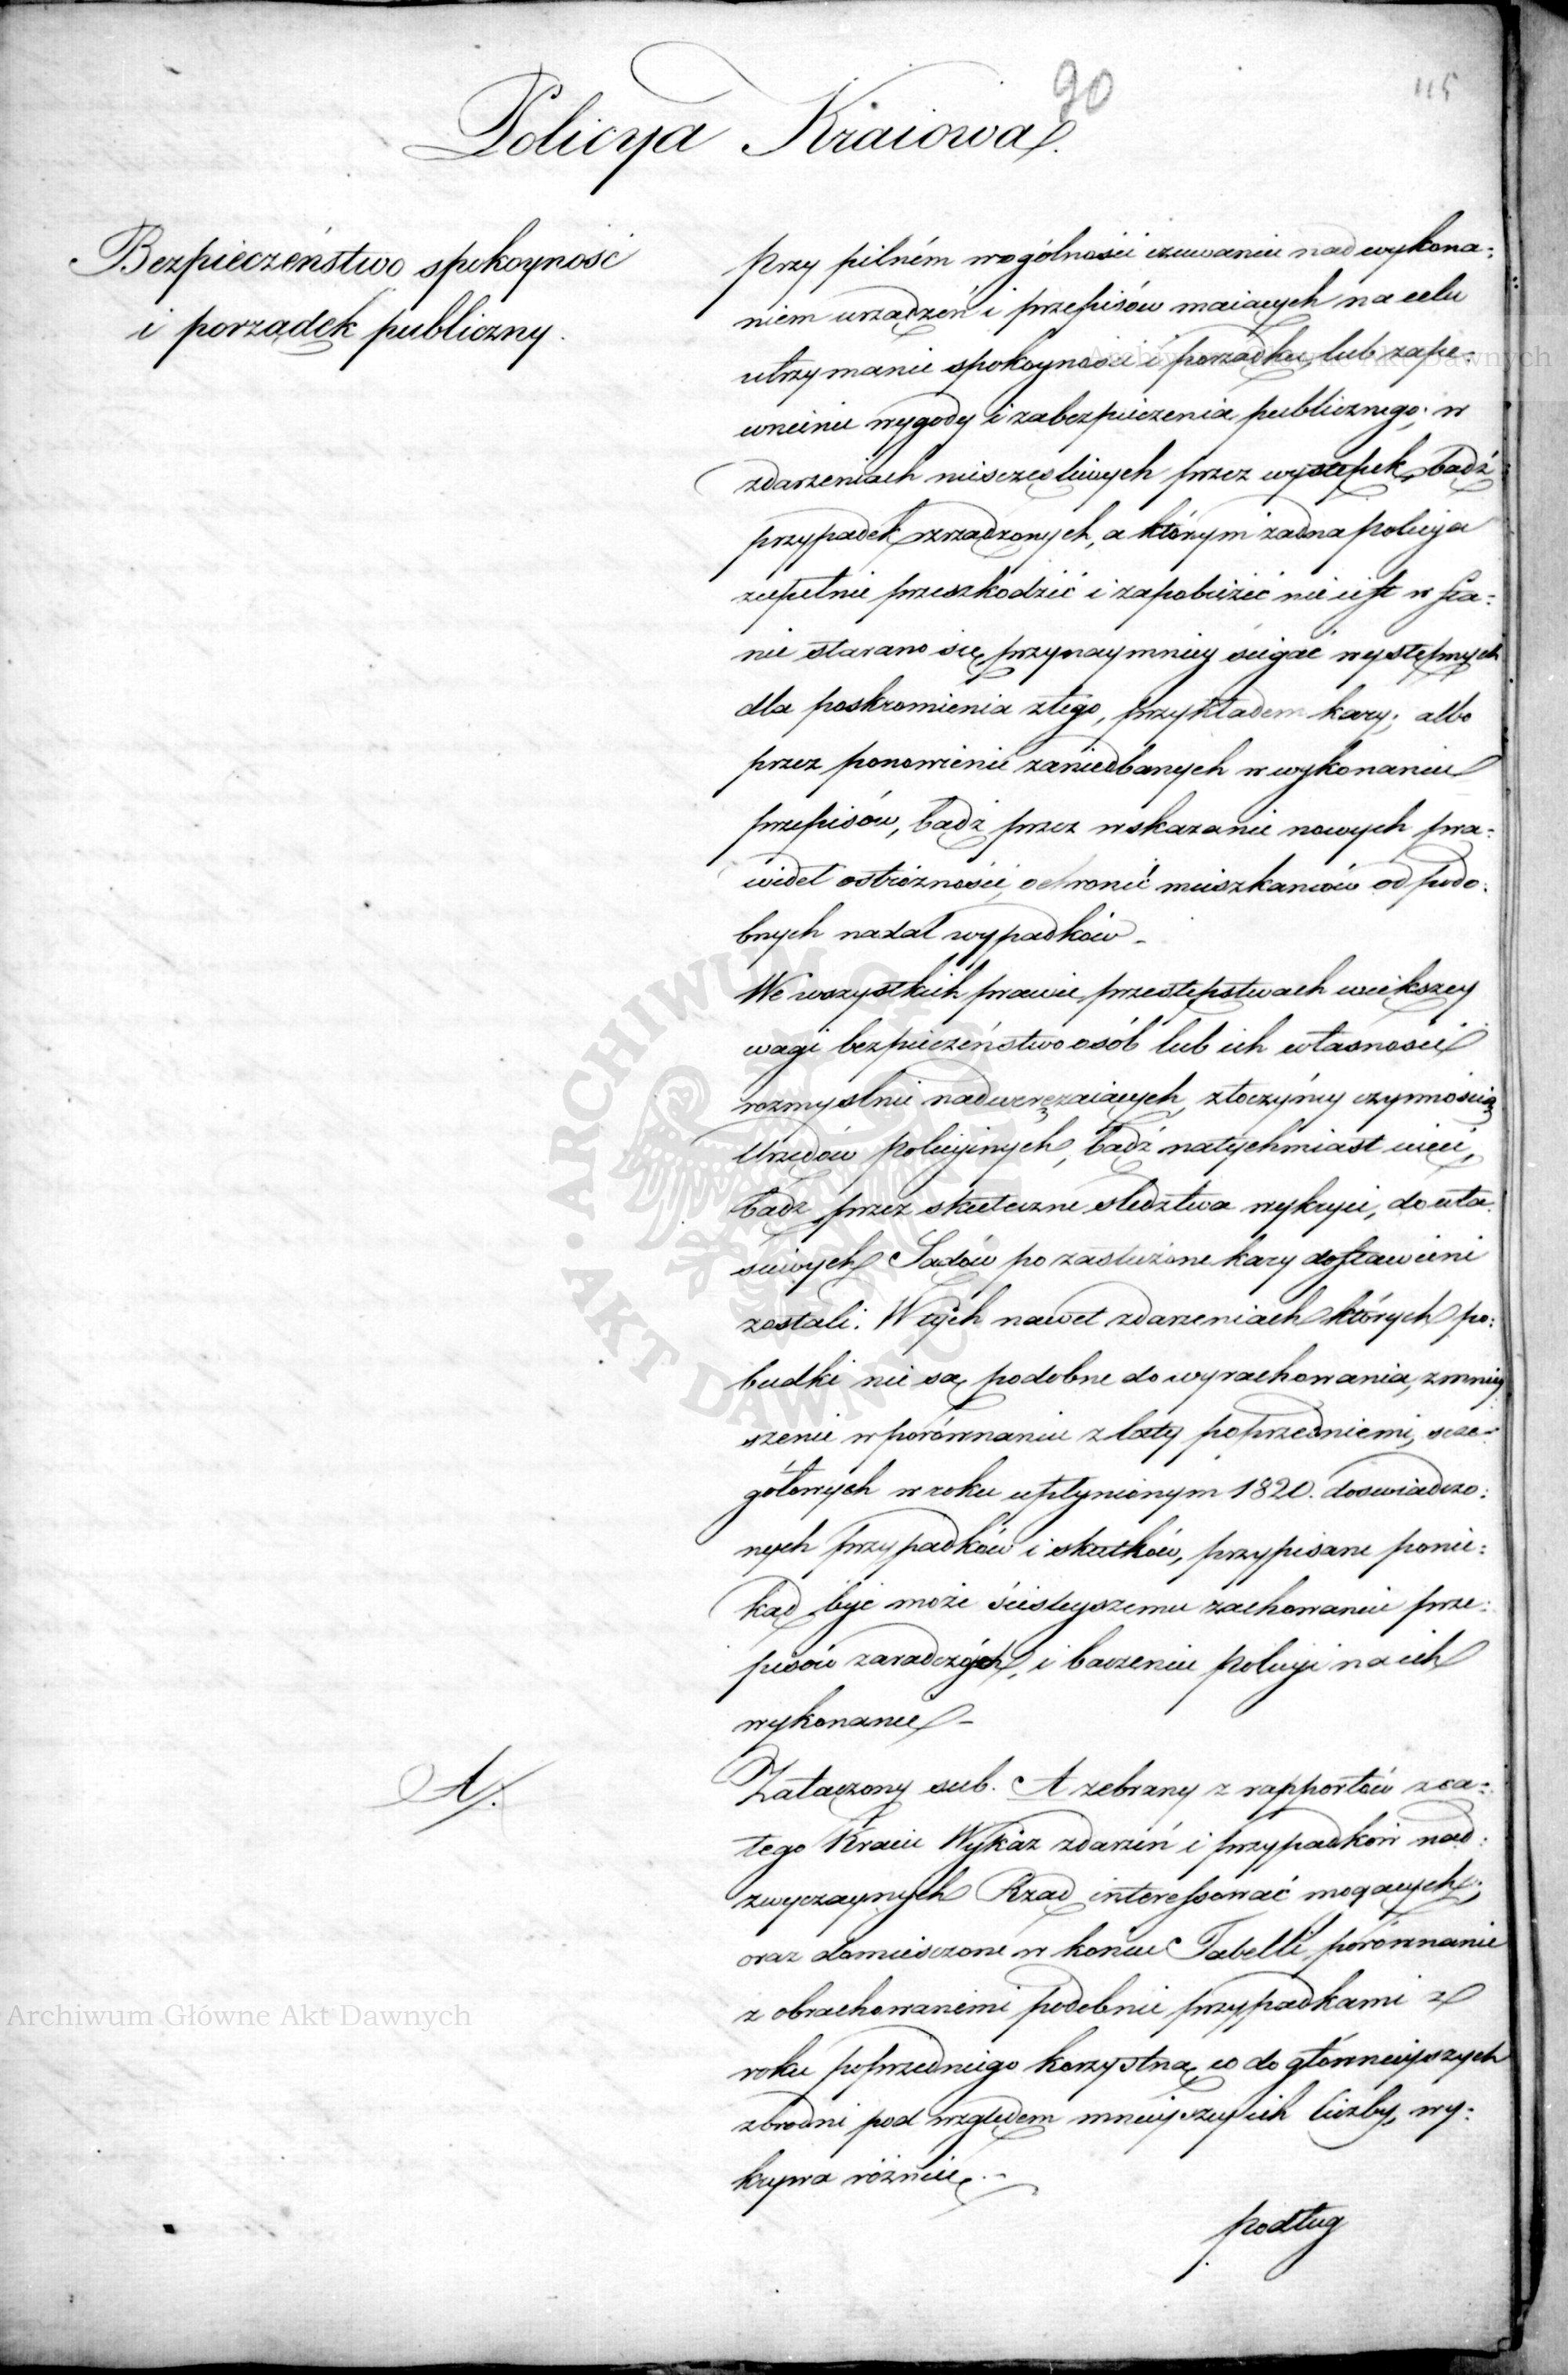 90
115
Policya Kraiowa.
Bezpieczeństwo spokoyność
i porządek publiczny.
przy pilném wogólności czuwaniu nad wykona:
niem urządzeń i przepisów maiących na celu
utrzymanie spokoyności i porządku, lub zape:
wnienie wygody i zabezpieczenia publicznego; w
zdarzeniach niesczęśliwych przez występek, bądź
przypadek zrządzonych, a którym żadna policya
zupełnie przeszkodzić i zapobieżić nie iest w sta:
nie starano się, przynaymniey ścigać występnych
dla poskromienia złego, przykładem kary; albo
przez ponowienie zaniedbanych w wykonaniu
przepisów, bądź przez wskazanie nowych pra:
wideł ostrożności, ochronić mieszkańców od podo:
bnych nadal wypadków –
We wszystkich prawie przestępstwach większey
wagi bezpieczeństwo osób lub ich własności
rozmyślnie nadwerężaiących, złoczyńcy czynnością
Urzędów policyinych, bądź natychmiast uięci,
bądź przez skuteczne śledztwa wykryci, do wła:
ściwych Sądów po zasłużone kary dostawieni
zostali. W tych nawet zdarzeniach których po:
budki nie są podobne do wyrachowania, zmniey
szenie w porównaniu z laty poprzedniemi, scze:
gółowych w roku upłynionym 1820. doswiadczo:
nych przypadków i skutków, przypisane ponie:
kąd być może ścisleyszemu zachowaniu prze:
pisów zaradczych, i baczeniu policyi na ich
wykonanie –
A/.
Załączony sub. A zebrany z rapportów z ca:
łego Kraiu Wykaz zdarzeń i przypadków nad:
zwyczaynych Rząd interessować mogących;
oraz domiesczone w końcu Tabelli, porównanie
z obrachowanemi podobnie przypadkami z
roku poprzedniego korzystną, co do główneyszych
zbrodni pod względem mnieyszey ich liczby, wy:
krywa różnicę. –
podług
Archiwum Główne Akt Dawnych
Archiwum Główne Akt Dawnych
ARCHIWUM GŁÓWNE • AKT DAWNYCH •